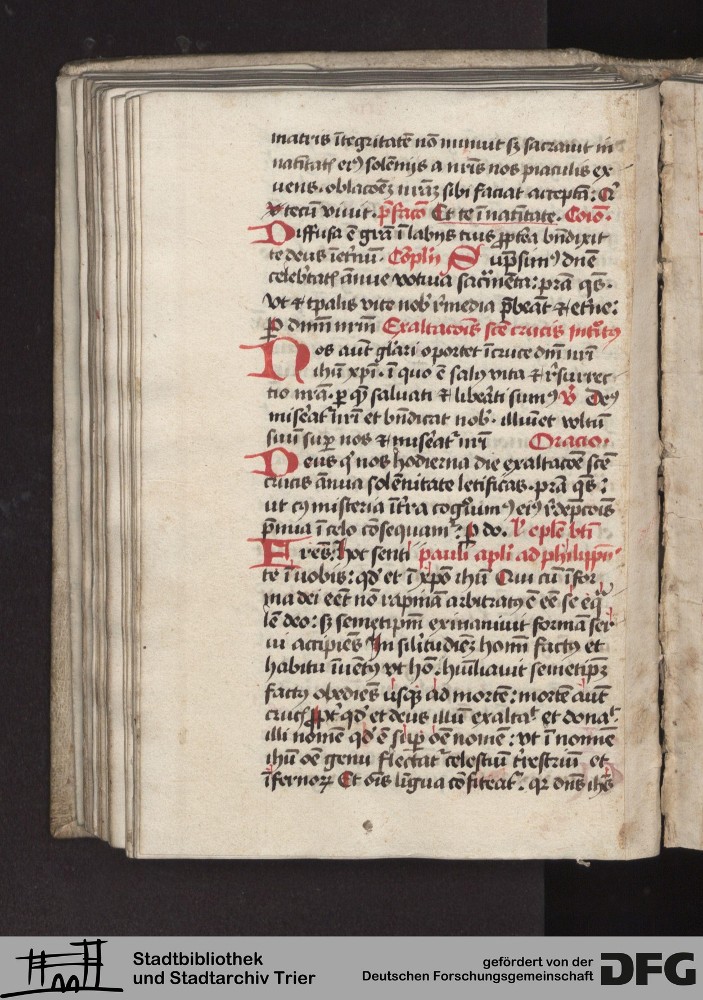 matris ītegritatē nō minuit sꝫ sacrauit in
natītatꝭ eiꝰ solēnijs a nrīs nos piaculis ex
uens · oblacōeꝫ nrāꝫ sibi faciat acceptā : Q̄
tecū viuit · p̄facō Et te ī natītate · Coīo ·
Diffusa ē grā ī labijs tuis ꝓpt̄ea bn̄dixit
te deus īet̄nū · Cōpl̄n Sūpsimꝰ dn̄e
celeb̄tatꝭ ānue votiua sac̄mēta : p̄ta q̄s ·
vt ⁊ tp̄alis vite nob̄ r̄media p̄beāt ⁊ et̄ne :
ꝑ dnm̄ nrm̄ Exaltacōis scē crucis introitꝰ
Nos aūt glari oportet ī cruce dnī nrī
ihū xp̄i · ī quo ē salꝰ vita ⁊ r̄surrec
tio nrā · ꝑ qm̄ saluati ⁊ lib̄ati sumꝰ v̄ Deꝰ
mis̄eat nrī et bn̄dicat nob̄ · illuīet vltū
suū suꝑ nos ⁊ mis̄eat nrī Oracio ·
Deus q̄ nos hodierna die exaltacōe scē
crucis ānua solēnitate letificas · p̄ta q̄s :
ut cꝰ misteria īt̄ra cognouimꝰ eiꝰ r̄dēpcōis
p̄mia ī celo cōsequam̄ : ꝑ do · L̄ ep̄le btī
Frēs : hoc senti pauli apl̄i ad philippn̄
te ī uobis : qd̄ et ī xp̄o ihū Qui cū ī for
ma dei eēt nō rapinā arbitratꝰ ē eē se eq̄
lē deo : sꝫ semetipm̄ exinaniuit formā ser
ui accipiēs In sil̄itudiēꝫ hom̄ factꝰ et
habitu īuētꝰ vt hō · hūiliauit semetipꝫ
factꝰ obediēs usqꝫ ad mortē : mortē aūt
crucꝭ ꝓpt̄ qd̄ et deus illū exaltaᵗ et donaᵗ ·
illi nomē qd̄ ē suꝑ oē nomē : vt ī nomīe
ihū oē genu flectat̄ celestiū t̄restriū et
īfernoꝝ Et oīs līgua cōfiteat̄ · qꝛ dn̄s ihs̄
Stadtbibliothek
und Stadtarchiv Trier
gefördert von der
Deutschen Forschungsgemeinschaft
DFG